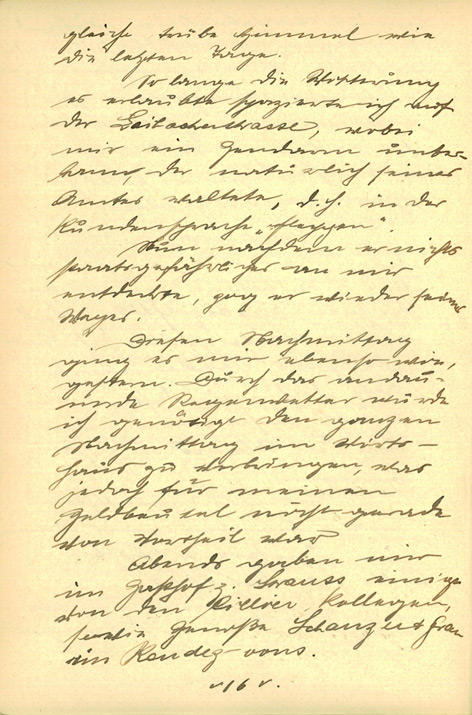 gleiche trübe Himmel wie
die letzten Tage.
So lange die Witterung
es erlaubte spazierte ich auf
der Laibacherstrasse, wobei
mir ein Gendarm unter-
kam, der natürlich seines
Amtes waltete, d. h. in der
Kundensprache „fleppen".
Nun nachdem er nichts
staatsgefährliches an mir
entdeckte, zog er wieder seines
Weges.
Diesen Nachmittag
ging es mir ebenso wie
gestern. Durch das andau-
ernde Regenwetter wurde
ich genötigt den ganzen
Nachmittag im Wirts-
haus zu verbringen, was
jedoch für meinen
Geldbeutel nicht gerade
von Vorteil war
Abends gaben mir
im Gasthof z. Strauss einige
von den Cillier Kollegen,
sowie Genosse Schanzer & Frau
ein Rendez-vous.
16